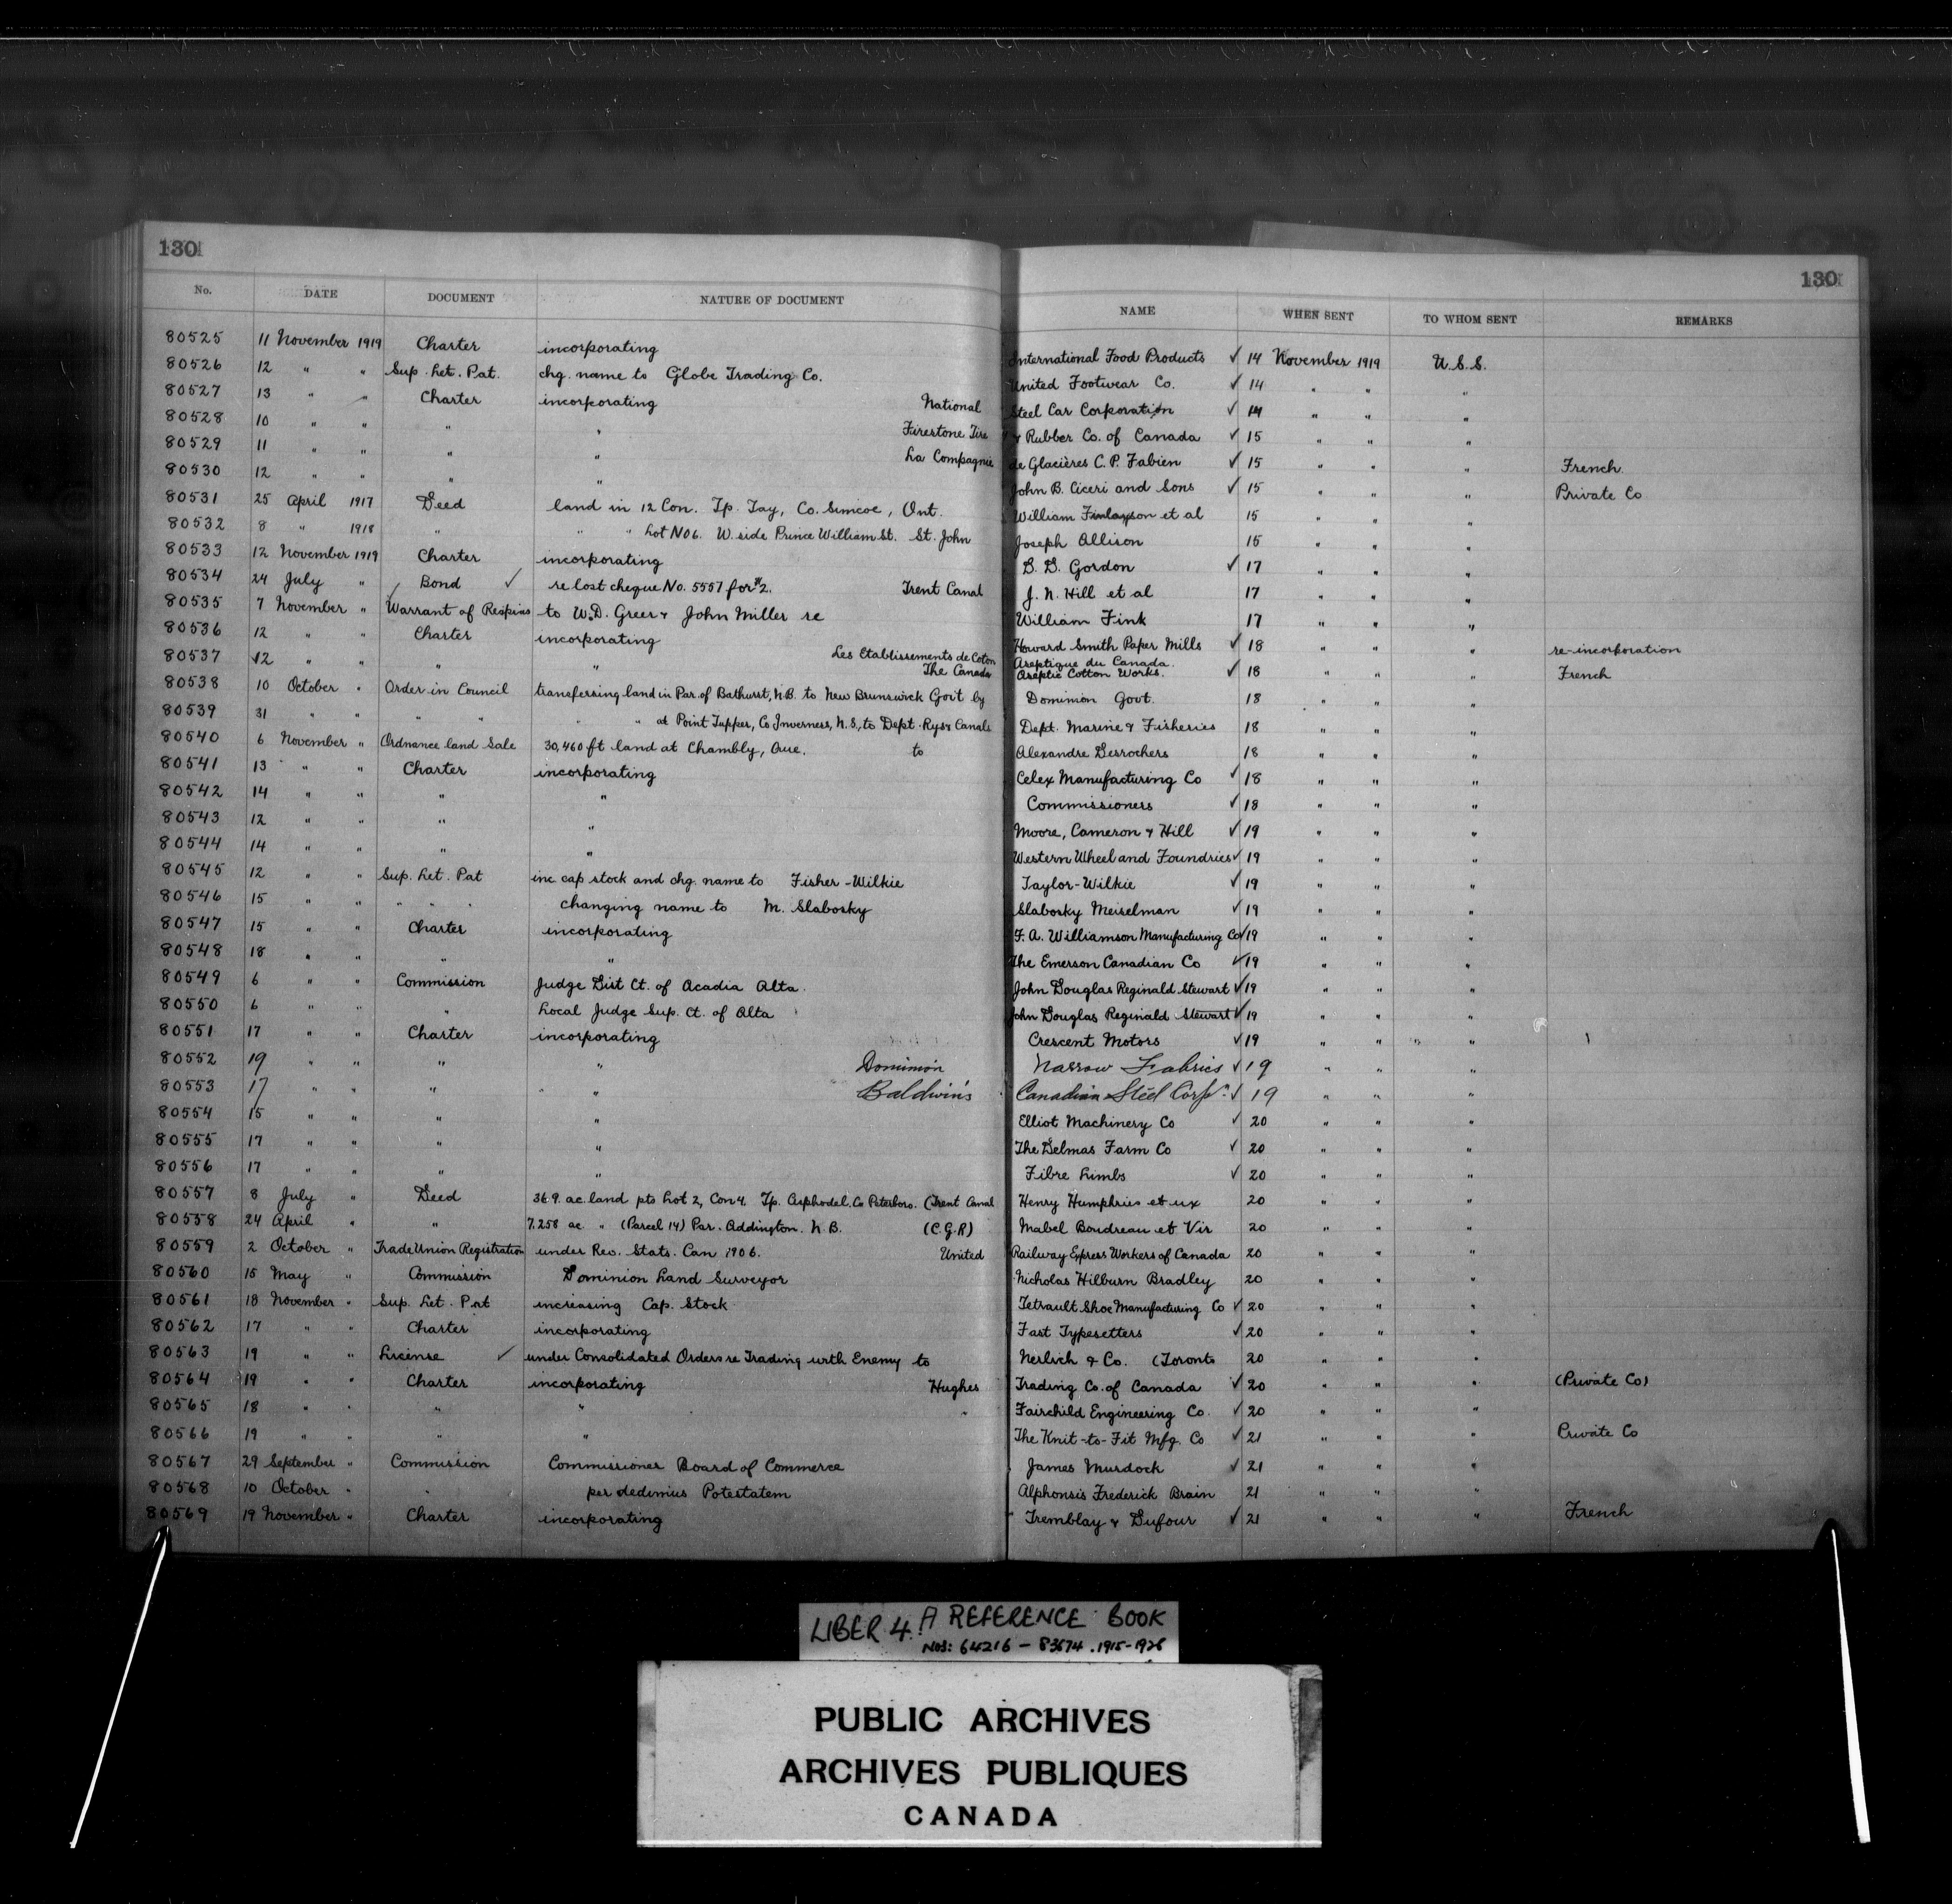 130 130
No. DATE DOCUMENT NATURE OF DOCUMENT NAME WHEN SENT TO WHOM SENT REMARKS
80525 11 November 1919 Charter incorporating International Food Products ✓ 14 November 1919 U.S.S.
80526 12 " " Sup. Let. Pat. chg. name to Globe Trading Co. United Footwear Co. ✓ 14 " " "
80527 13 " " Charter incorporating National Steel Car Corporation ✓ 14 " " "
80528 10 " " " " Firestone Tire & Rubber Co. of Canada ✓ 15 " " "
80529 11 " " " " La Compagnie de Glacières C. P. Fabien ✓ 15 " " " French
80530 12 " " " " John B. Ciceri and Sons ✓ 15 " " " Private Co
80531 25 April 1917 Deed land in 12 Con. Tp. Tay, Co. Simcoe, Ont. William Finlayson et al 15 " " "
80532 8 " 1918 " " Lot No 6. W. side Prince William St. St. John Joseph Allison 15 " " "
80533 12 November 1919 Charter incorporating D. D. Gordon ✓ 17 " " "
80534 24 July " Bond ✓ re lost cheque No. 5557 for $2. Trent Canal J. N. Hill et al 17 " " "
80535 7 November " Warrant of Respins to W. D. Greer & John Miller re William Fink 17 " " "
80536 12 " " Charter incorporating Howard Smith Paper Mills ✓ 18 " " " re-incorporation
80537 12 " " " " Les Etablissements de Coton Aseptique du Canada.
The Canada Aseptic Cotton Works. ✓ 18 " " " French
80538 10 October " Order in Council transferring land in Par. of Bathurst, N.B. to New Brunswick Gov't by Dominion Govt. 18 " " "
80539 31 " " " " " " at Point Tupper, Co Inverness, N.S., to Dept. Rys & Canals Dept. Marine & Fisheries 18 " " "
80540 6 November " Ordnance land Sale 30,460 ft land at Chambly, Que. to Alexandre Desrochers 18 " " "
80541 13 " " Charter incorporating Celex Manufacturing Co ✓ 18 " " "
80542 14 " " " " Commissioners ✓ 18 " " "
80543 12 " " " " Moore, Cameron & Hill ✓ 19 " " "
80544 14 " " " " Western Wheel and Foundries ✓ 19 " " "
80545 12 " " Sup. Let. Pat inc cap stock and chg. name to Fisher-Wilkie Taylor-Wilkie ✓ 19 " " "
80546 15 " " " " " changing name to M. Slabosky Slabosky Meiselman ✓ 19 " " "
80547 15 " " Charter incorporating F. A. Williamson Manufacturing Co ✓ 19 " " "
80548 18 " " " " The Emerson Canadian Co ✓ 19 " " "
80549 6 " " Commission Judge Dist Ct. of Acadia Alta. John Douglas Reginald Stewart ✓ 19 " " "
80550 6 " " " Local Judge Sup. Ct. of Alta John Douglas Reginald Stewart ✓ 19 " " "
80551 17 " " Charter incorporating Crescent Motors ✓ 19 " " "
80552 19 " " " " Dominion Narrow Fabrics ✓ 19 " " "
80553 17 " " " " Baldwin's Canadian Steel Corpn. ✓ 19 " " "
80554 15 " " " " Elliot Machinery Co ✓ 20 " " "
80555 17 " " " " The Delmas Farm Co ✓ 20 " " "
80556 17 " " " " Fibre Limbs ✓ 20 " " "
80557 8 July " Deed 36.9. ac. land pts Lot 2, Con 4. Tp. Asphodel, Co Peterboro. (Trent Canal Henry Humphries et ux 20 " " "
80558 24 April " " 7.258 ac " (Parcel 14) Par. Addington. N. B. (C.G.R) Mabel Boudreau et Vir 20 " " "
80559 2 October " Trade Union Registration under Rev. Stats. Can 1906. United Railway Express Workers of Canada 20 " " "
80560 15 May " Commission Dominion Land Surveyor Nicholas Hilburn Bradley 20 " " "
80561 18 November " Sup. Let. Pat increasing Cap. Stock Tetrault Shoe Manufacturing Co ✓ 20 " " "
80562 17 " " Charter incorporating Fast Typesetters ✓ 20 " " "
80563 19 " " License ✓ under Consolidated Orders re Trading with Enemy to Nerlich & Co. (Toronto 20 " " "
80564 19 " " Charter incorporating Hughes Trading Co. of Canada ✓ 20 " " " (Private Co)
80565 18 " " " " " Fairchild Engineering Co. ✓ 20 " " "
80566 19 " " " " The Knit-to-Fit Mfg. Co ✓ 21 " " " Private Co
80567 29 September " Commission Commissioner Board of Commerce James Murdock ✓ 21 " " "
80568 10 October " " per dedimus Potestatem Alphonsis Frederick Brain 21 " " "
80569 19 November " Charter incorporating Tremblay & Dufour ✓ 21 " " " French
LIBER 4. A REFERENCE BOOK
NOS: 64216 - 83674. 1915-1926
PUBLIC ARCHIVES
ARCHIVES PUBLIQUES
CANADA